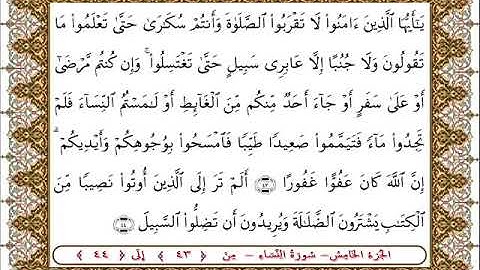 يَٰٓأَيُّهَا ٱلَّذِينَ ءَامَنُوا۟ لَا تَقْرَبُوا۟ ٱلصَّلَوٰةَ وَأَنتُمْ سُكَٰرَىٰ حَتَّىٰ تَعْلَمُوا۟ مَا
تَقُولُونَ وَلَا جُنُبًا إِلَّا عَابِرِى سَبِيلٍ حَتَّىٰ تَغْتَسِلُوا۟ ۚ وَإِن كُنتُم مَّرْضَىٰٓ
أَوْ عَلَىٰ سَفَرٍ أَوْ جَآءَ أَحَدٌ مِّنكُم مِّنَ ٱلْغَآئِطِ أَوْ لَٰمَسْتُمُ ٱلنِّسَآءَ فَلَمْ
تَجِدُوا۟ مَآءً فَتَيَمَّمُوا۟ صَعِيدًا طَيِّبًا فَٱمْسَحُوا۟ بِوُجُوهِكُمْ وَأَيْدِيكُمْ ۗ
إِنَّ ٱللَّهَ كَانَ عَفُوًّا غَفُورًا ﴿٤٣﴾ أَلَمْ تَرَ إِلَى ٱلَّذِينَ أُوتُوا۟ نَصِيبًا مِّنَ
ٱلْكِتَٰبِ يَشْتَرُونَ ٱلضَّلَٰلَةَ وَيُرِيدُونَ أَن تَضِلُّوا۟ ٱلسَّبِيلَ ﴿٤٤﴾
الجزء الخامس - سورة النساء - من ﴿ ٤٣ ﴾ إلى ﴿ ٤٤ ﴾